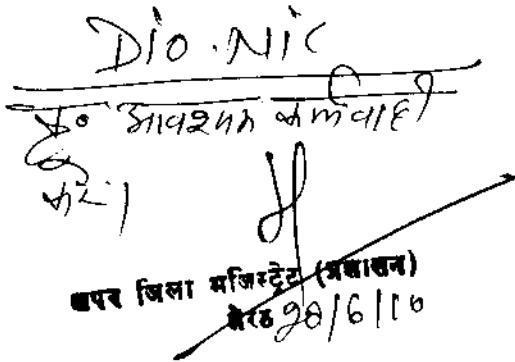 DIO.NIC
कृ० आवश्यक कार्यवाही
करें।
अपर जिला मजिस्ट्रेट (प्रशासन)
मेरठ 28/6/10